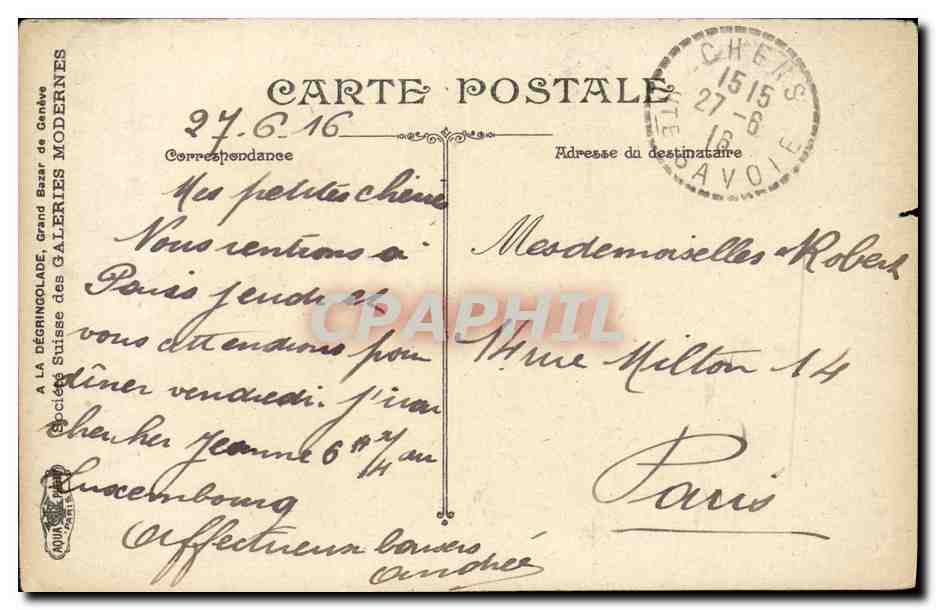 CARTE POSTALE
27-6-16
Correspondance
Mes petites chéries
Nous rentrons à
Paris jeudi et
vous attendrons pour
dîner vendredi. j'irai
chercher Jeanne 6 h au
Luxembourg
Affectueux baisers
Andrée
Adresse du destinataire
Mesdemoiselles Robert
14 rue Milton 14
Paris
CHENS
1515
27-6
16
HTE SAVOIE
A LA DÉGRINGOLADE, Grand Bazar de Genève
Société Suisse des GALERIES MODERNES
AQUA PHOTO
PARIS
CPAPHIL